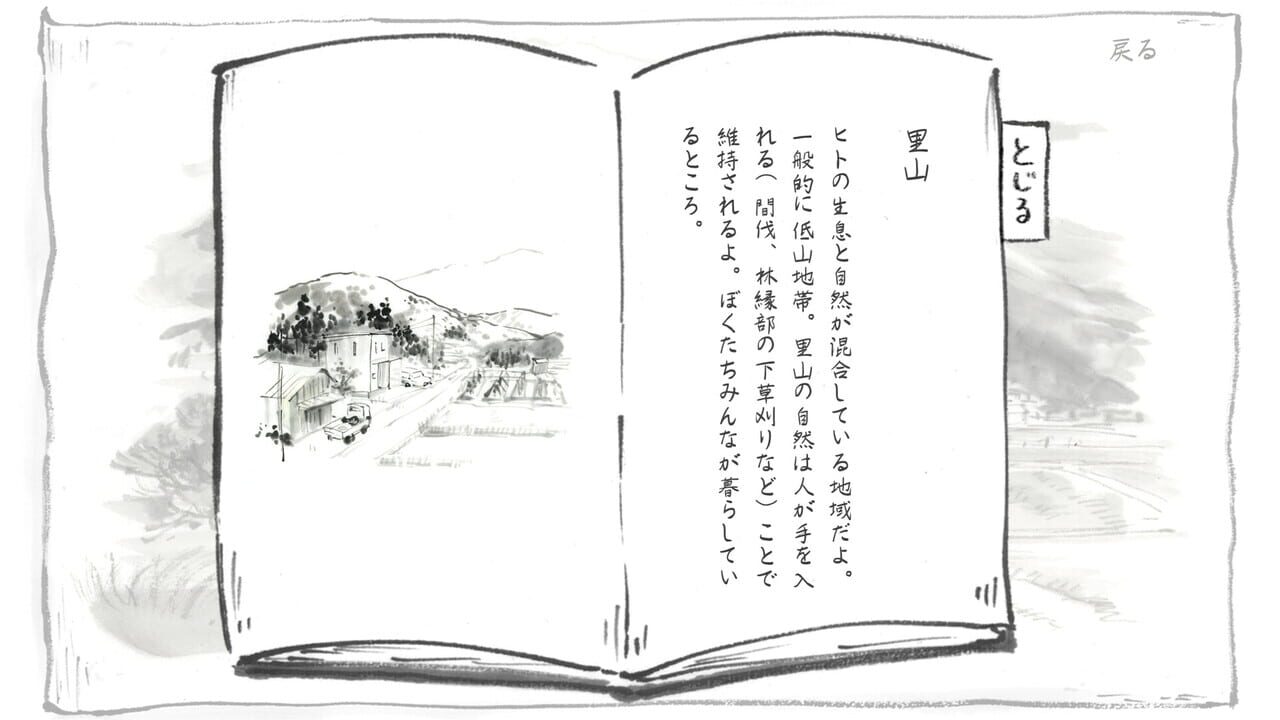 戻る
とじる
里山
ヒトの生息と自然が混合している地域だよ。
一般的に低山地帯。里山の自然は人が手を入
れる(間伐、林縁部の下草刈りなど)ことで
維持されるよ。ぼくたちみんなが暮らしてい
るところ。